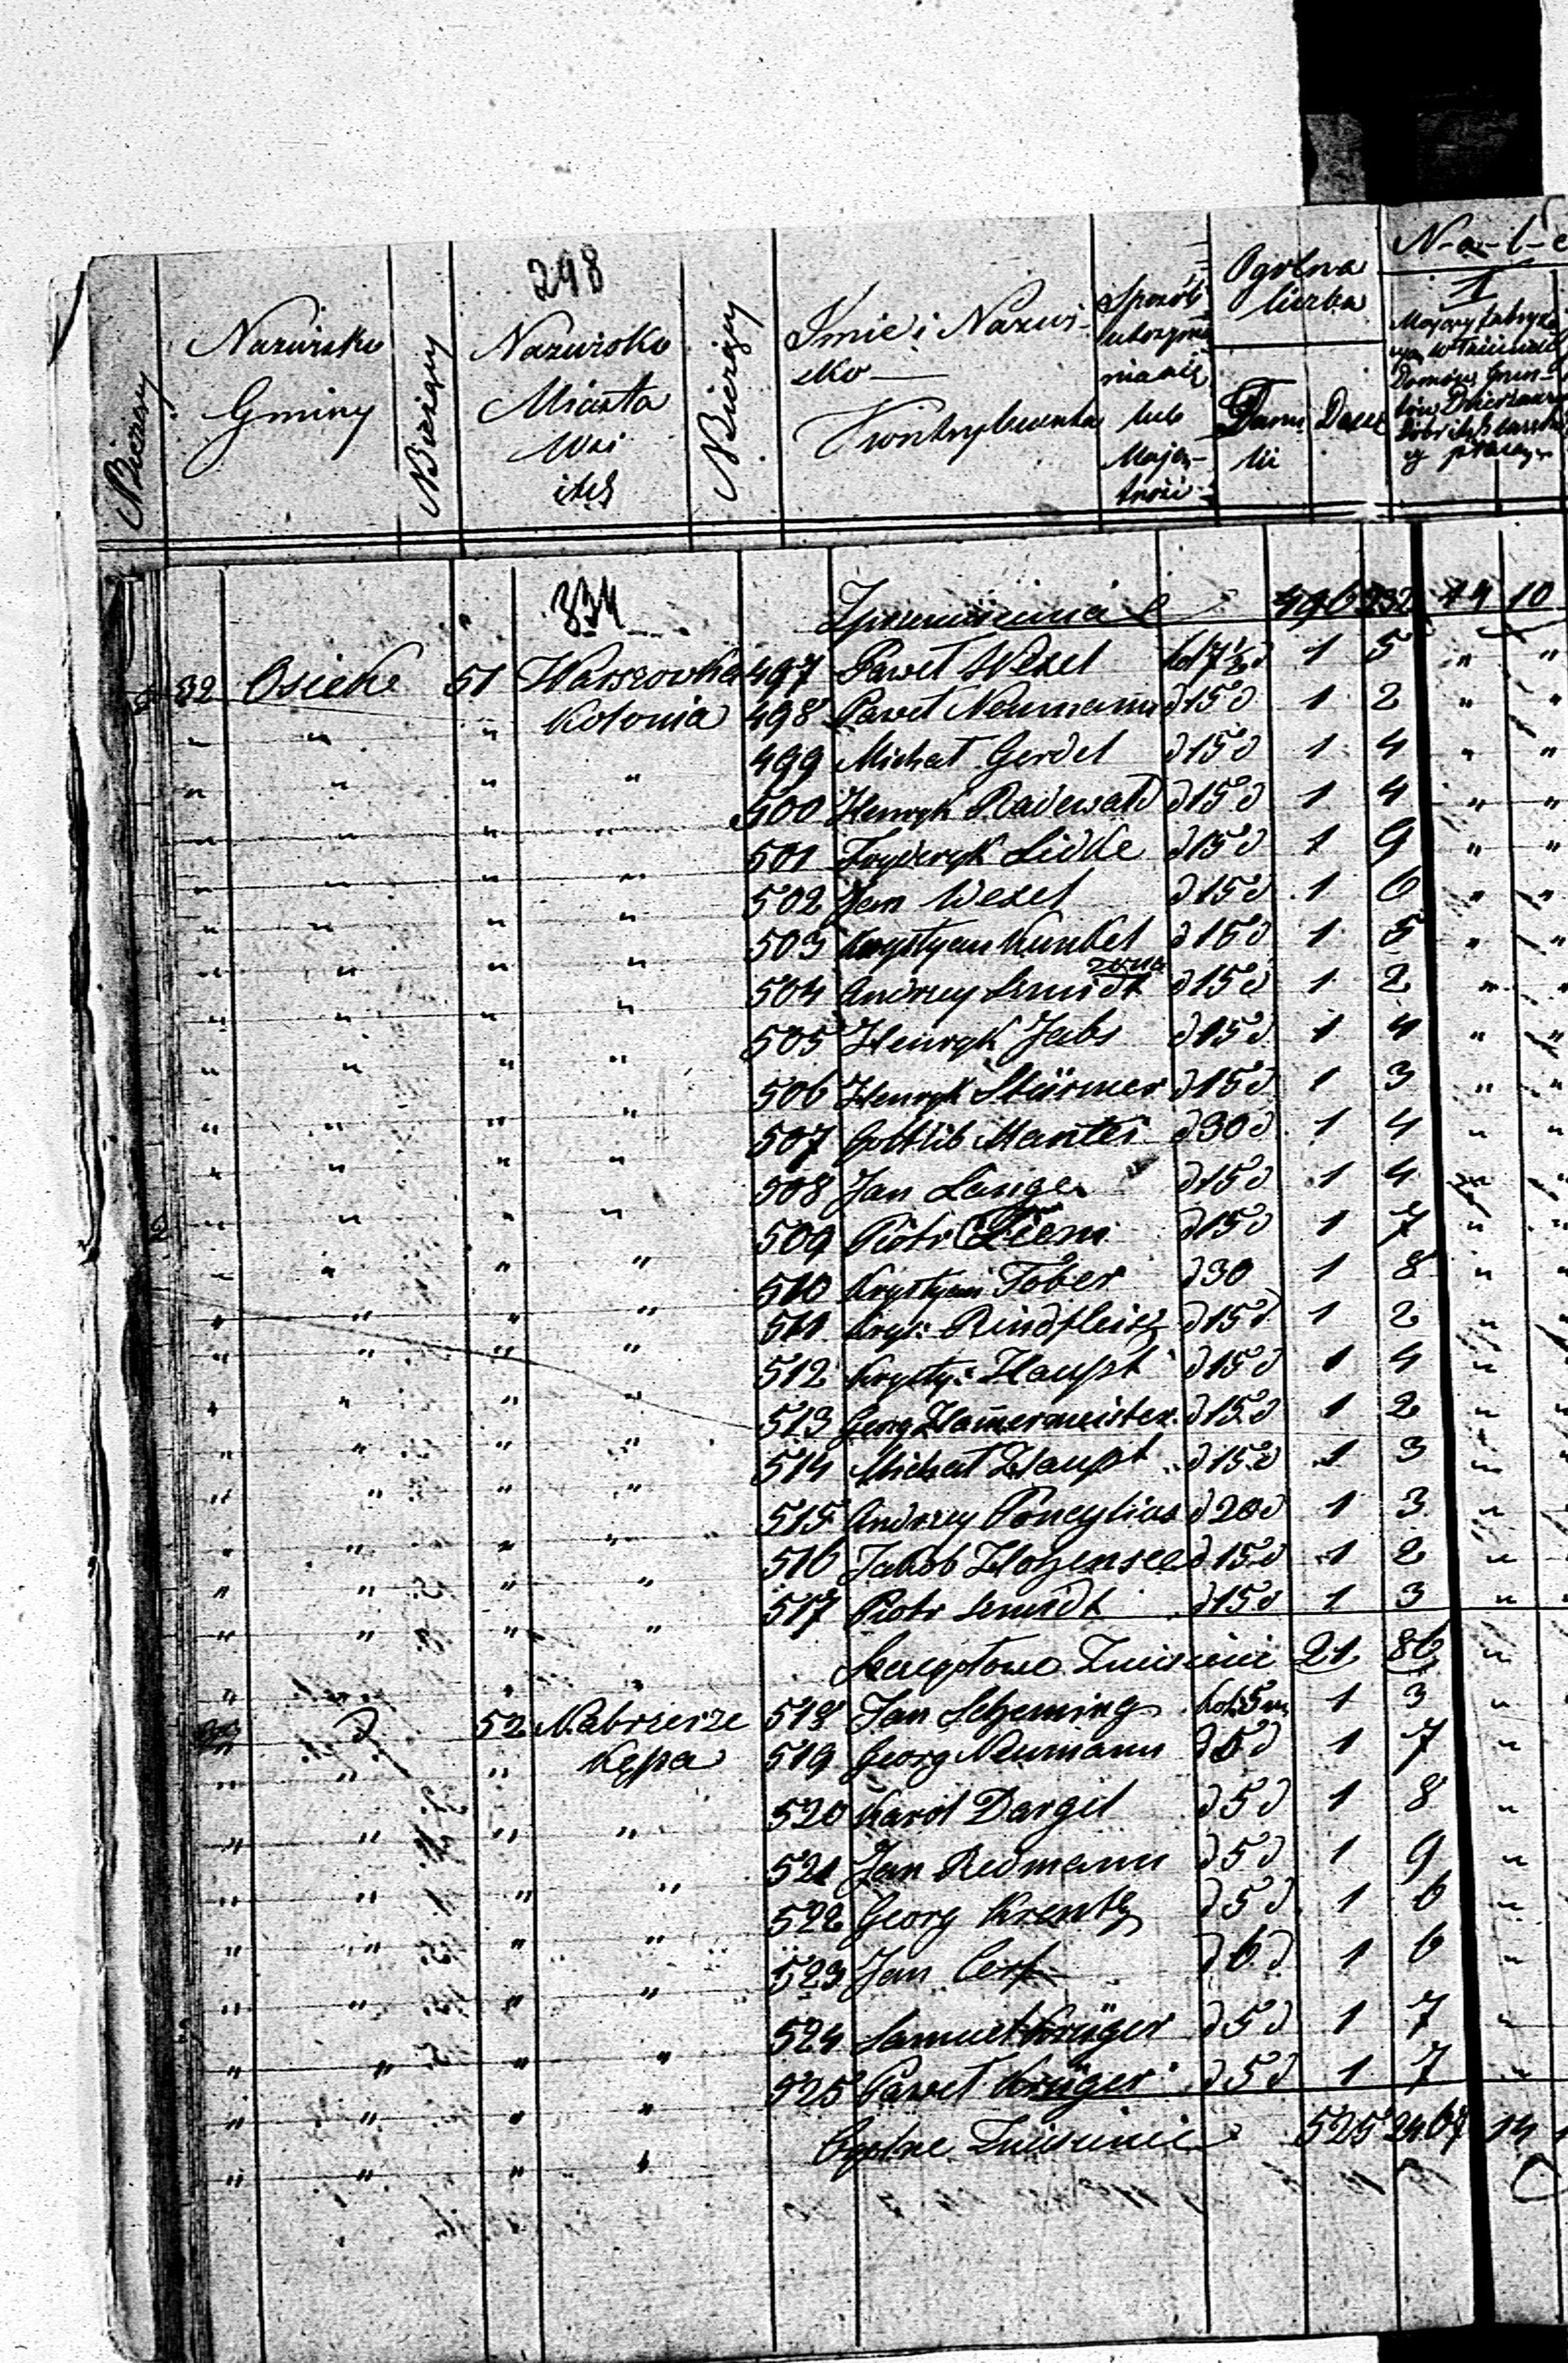 298
Bieżący
Nazwisko
Gminy
Bieżący
Nazwisko
Miasta
Wsi
itd
NBieżący
Imie i Nazwi-
sko
Kontrybuenta
Sposób
utrzyma
niania
lub
Mają-
tności
Ogólna
liczba
Fami
lii
Dusz
N-a-l-e
1
334
Zprzeniesienia 496 14 10
32 Osieke 51 Warszowka 497 Paweł Wezel kol 7½ d 1 5 " "
" " " Kolonia 498 Paweł Neumann d 15 d 1 2 " "
" " " " 499 Michał Gerdel d 15 d 1 4 " "
" " " " 500 Henryk Radewald d 15 d 1 4 " "
" " " " 501 Fryderyk Lidke d 15 d 1 9 " "
" " " " 502 Jan Wezel d 15 d 1 6 " "
" " " " 503 Krystyan Kunkel d 15 d 1 5 " "
żona
" " " " 504 Andrzey Szmidt d 15 d 1 2 " "
" " " " 505 Henryk Jabs d 15 d 1 4 " "
" " " " 506 Henryk Stürmer d 15 d 1 3 " "
" " " " 507 Gottlib Mantei d 30 d 1 4 " "
" " " " 508 Jan Lange d 15 d 1 4 " "
" " " " 509 Piotr d 15 d 1 7 " "
" " " " 510 Krystyan Tober d 30 1 8 " "
" " " " 511 Kryst: Rindfleisz d 15 d 1 2 "
" " " " 512 Krysty: Haupt d 15 d 1 4 "
" " " " 513 Georg Ham̄ermeister d 15 d 1 2 "
" " " " 514 Michał Haupt d 15 d 1 3 "
" " " " 515 Andrzey Poncylius d 20 d 1 3 "
" " " " 516 Jakob Hohensee d 15 d 1 2 "
" " " " 517 Piotr Szmidt d 15 d 1 3 "
Szczegółowe Zniesienie 21 86 "
" d 52 Nabrzerze 518 Jan Scheming kol: 5 m 1 3 "
" " " Kępa 519 Georg Neumann d 6 d 1 7 "
" " " " 520 Karol Dargil d 5 d 1 8 "
" " " " 521 Jan Redmann d 5 d 1 9 "
" " " " 522 Georg Krentz d 5 d 1 6 "
" " " " 523 Jan d 6 d 1 6 "
" " " " 524 Samuel Krüger d 5 d 1 7 "
" " " " 525 Paweł Krüger d 5 d 1 7 "
Ogólne Zniesienie 525 2467 14